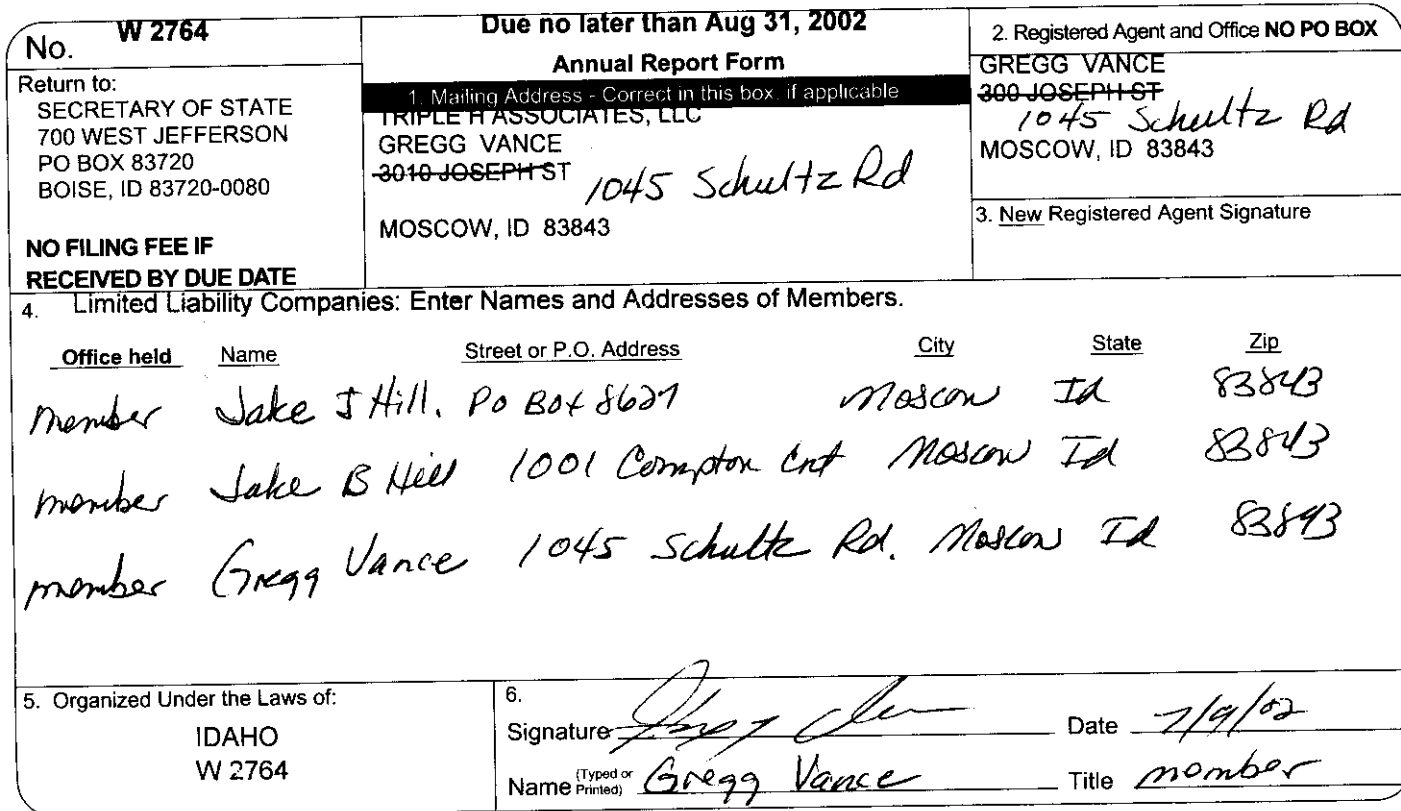 No. W 2764
Due no later than Aug 31, 2002
Annual Report Form
Return to:
SECRETARY OF STATE
700 WEST JEFFERSON
PO BOX 83720
BOISE, ID 83720-0080
NO FILING FEE IF
RECEIVED BY DUE DATE
1. Mailing Address - Correct in this box, if applicable
TRIPLE H ASSOCIATES, LLC
GREGG VANCE
3010 JOSEPH ST
1045 Schultz Rd
MOSCOW, ID 83843
2. Registered Agent and Office NO PO BOX
GREGG VANCE
300 JOSEPH ST
1045 Schultz Rd
MOSCOW, ID 83843
3. New Registered Agent Signature
4. Limited Liability Companies: Enter Names and Addresses of Members.
Office held Name Street or P.O. Address City State Zip
member Jake J Hill. PO Box Moscow Id 83843
member Jake B Hill 1001 Compton Moscow Id 83843
member Gregg Vance 1045 Schultz Rd. Moscow Id 83843
5. Organized Under the Laws of:
IDAHO
W 2764
6.
Signature Date 7/9/02
Name (Typed or Printed) Gregg Vance Title member